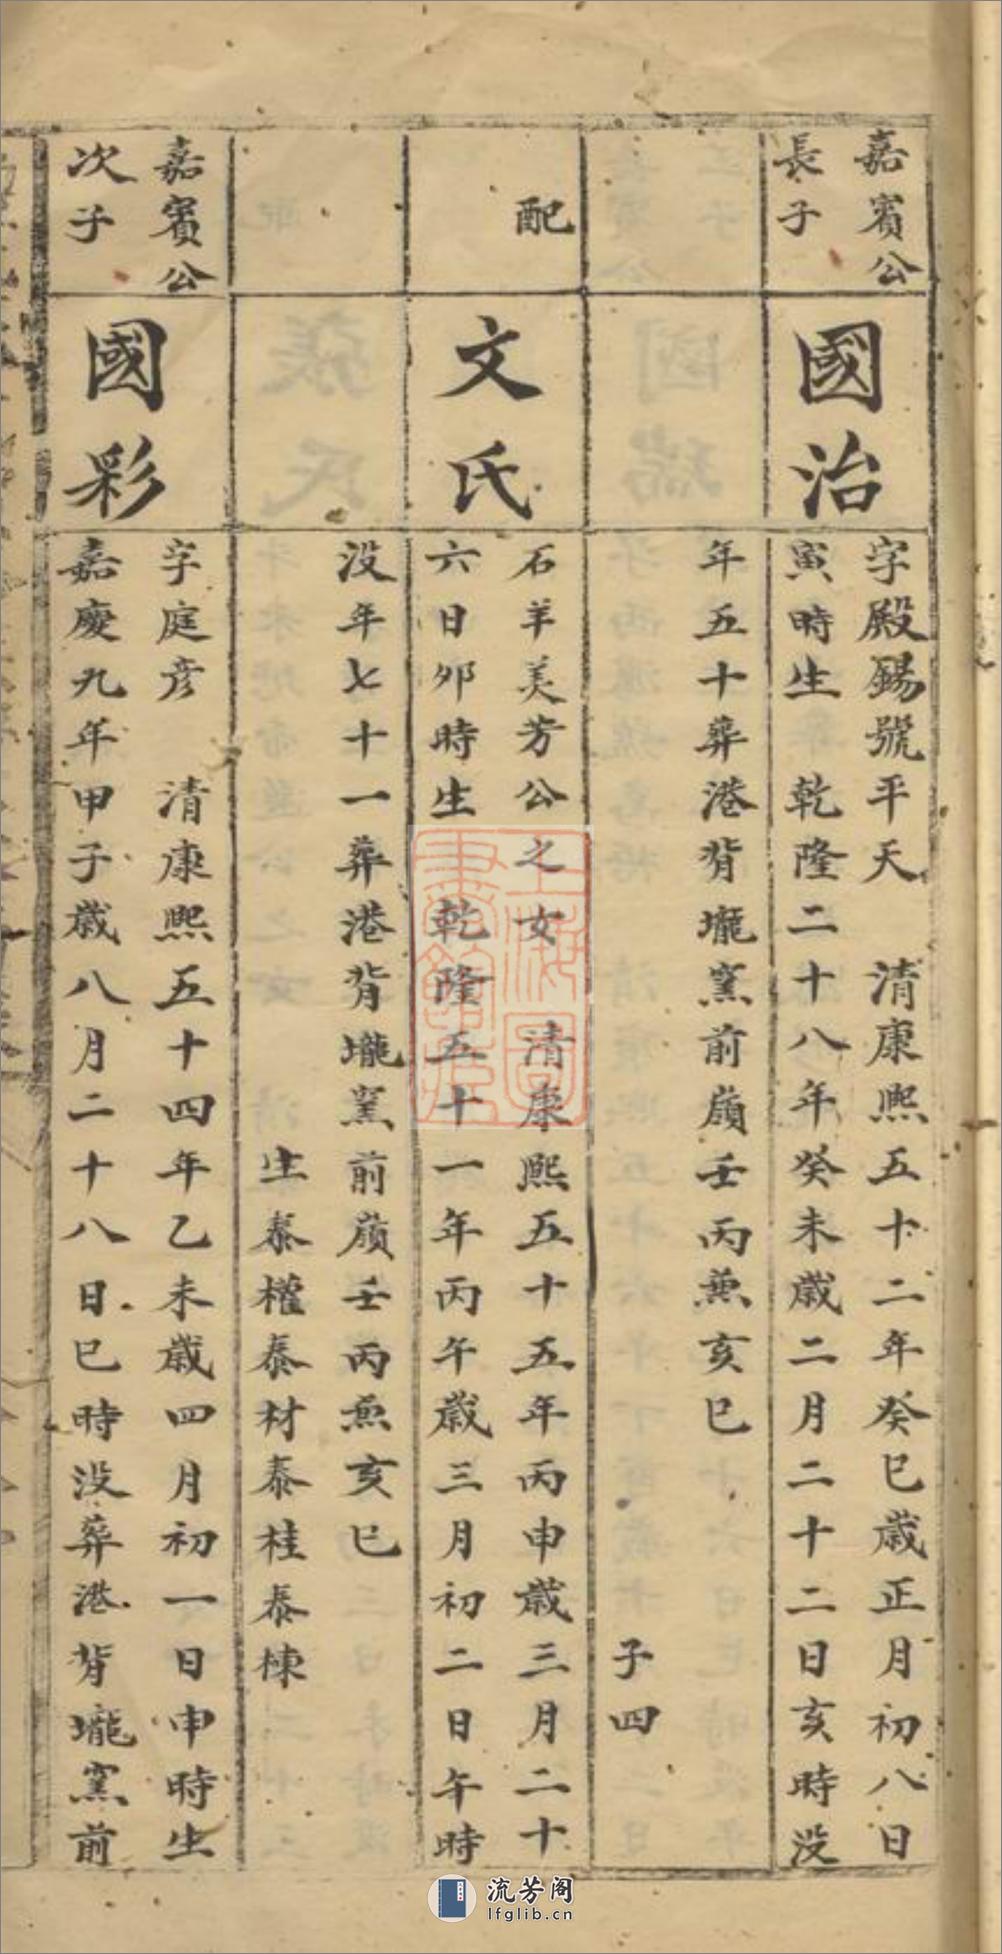 嘉賓公
長子
國治
字殿錫號平天　清康熙五十二年癸巳歲正月初八日
寅時生　乾隆二十八年癸未歲二月二十二日亥時没
年五十葬港背壠窯前嶺壬丙兼亥巳
子四
配
文氏
石羊美芳公之女　清康熙五十五年丙申歲三月二十
六日卯時生　乾隆五十一年丙午歲三月初二日午時
没年七十一葬港背壠窯前嶺壬丙兼亥巳
生泰權泰材泰桂泰棟
嘉賓公
次子
國彩
字庭彦　清康熙五十四年乙未歲四月初一日申時生
嘉慶九年甲子歲八月二十八日巳時没葬港背壠窯前
上海圖書館藏
流芳阁
lfglib.cn